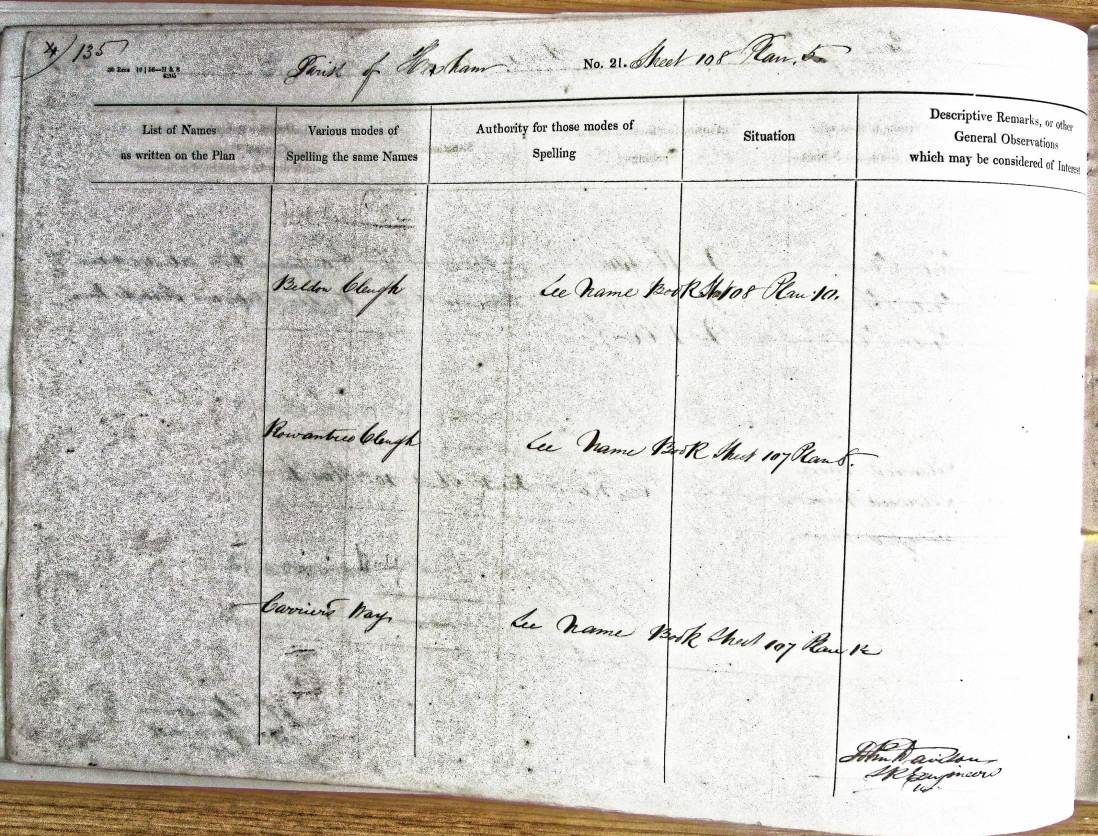 4/135
Parish of Hexham No. 21. Sheet 108 Plan. 5
List of Names
as written on the Plan
Various modes of
Spelling the same Names
Authority for those modes of
Spelling
Situation
Descriptive Remarks, or other
General Observations
which may be considered of Interest
Beldon Cleugh See Name Book Sht 108 Plan 10.
Rowantree Cleugh See Name Book Sheet 107 Plan 8.
Carrier's Way See Name Book Sheet 107 Plan 12
John Davidson
Engineers